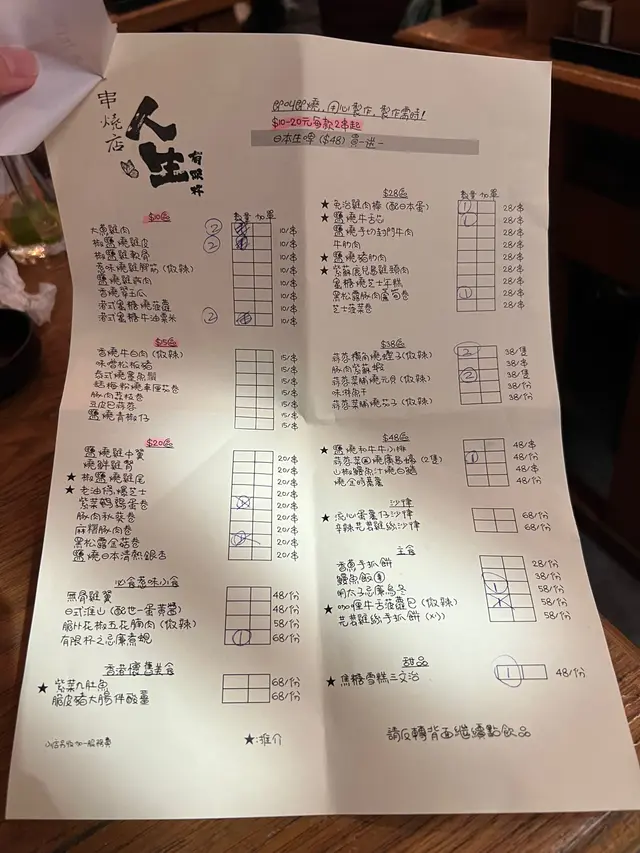 串燒店
人生
有限杯
即叫即燒，用心製作，製作需時！
$10-20元每款2串起
日本生啤 ($48) 買一送一
$10區
數量 加單
大蔥雞肉 ② 10/串
椒鹽燒雞皮 ② 10/串
椒鹽雞軟骨 10/串
惹味燒雞腳筋 (微辣) 10/串
鹽燒雞肉 10/串
香燒翠玉瓜 10/串
港式蜜糖燒菠蘿 10/串
港式蜜糖牛油粟米 ② 10/串
$15區
香燒牛白肉 (微辣) 15/串
味噌松板豬 15/串
豚肉菇卷 15/串
豆皮巴蒜蓉 15/串
鹽燒青椒仔 15/串
$20區
鹽燒雞中翼 20/串
燒鮮雞腎 20/串
★ 椒鹽燒雞尾 20/串
★ 老油條爆芝士 20/串
紫菜鵪鶉蛋卷 20/串
豚肉秋葵卷 20/串
麻糬豚肉卷 20/串
黑松露金菇卷 20/串
鹽燒日本清熱銀杏 20/串
必食惹味小食
無骨雞翼 48/份
日式淮山 (配世一蛋黃醬) 48/份
脆汁花椒五花腩肉 (微辣) 58/份
有限杯之忌廉煮蜆 1 68/份
香港懷舊美食
★ 紫菜九肚魚 68/份
脆皮豬大腸伴酸薑 68/份
小店另收加一服務費
★:推介
$28區
數量 加單
★ 免治雞肉棒 (配日本蛋) 1 28/串
★ 鹽燒牛舌芯 1 28/串
鹽燒手切封門牛肉 28/串
牛肋肉 28/串
★ 鹽燒豬肋肉 28/串
★ 紫蘇鹿兒島雞頸肉 28/串
蜜糖燒芝士年糕 28/串
黑松露豚肉蘆筍卷 1 28/串
芝士菠菜卷 28/串
$38區
蒜蓉橫角燒蟶子 (微辣) 2 38/隻
豚肉紫蘇蝦 38/串
蒜蓉菜脯燒元貝 (微辣) 2 38/隻
味淋魚干 38/份
蒜蓉菜脯燒茄子 (微辣) 38/份
$48區
★ 鹽燒和牛牛小排 48/串
蒜蓉菜圃燒廣島蠔 (2隻) 1 48/份
山椒鰻魚汁燒白鱔 48/串
燒金時蕃薯 48/份
沙律
★ 流心蛋薯仔沙律 68/份
辛辣芫荽雞絲沙律 68/份
主食
香蔥手抓餅 28/份
鰻魚飯 38/份
明太子忌廉烏冬 1 58/份
★ 咖喱牛舌菠蘿包 (微辣) 58/份
芫荽雞絲手抓餅 58/份
甜品
★ 焦糖雪糕三文治 1 48/份
請反轉背面繼續點飲品